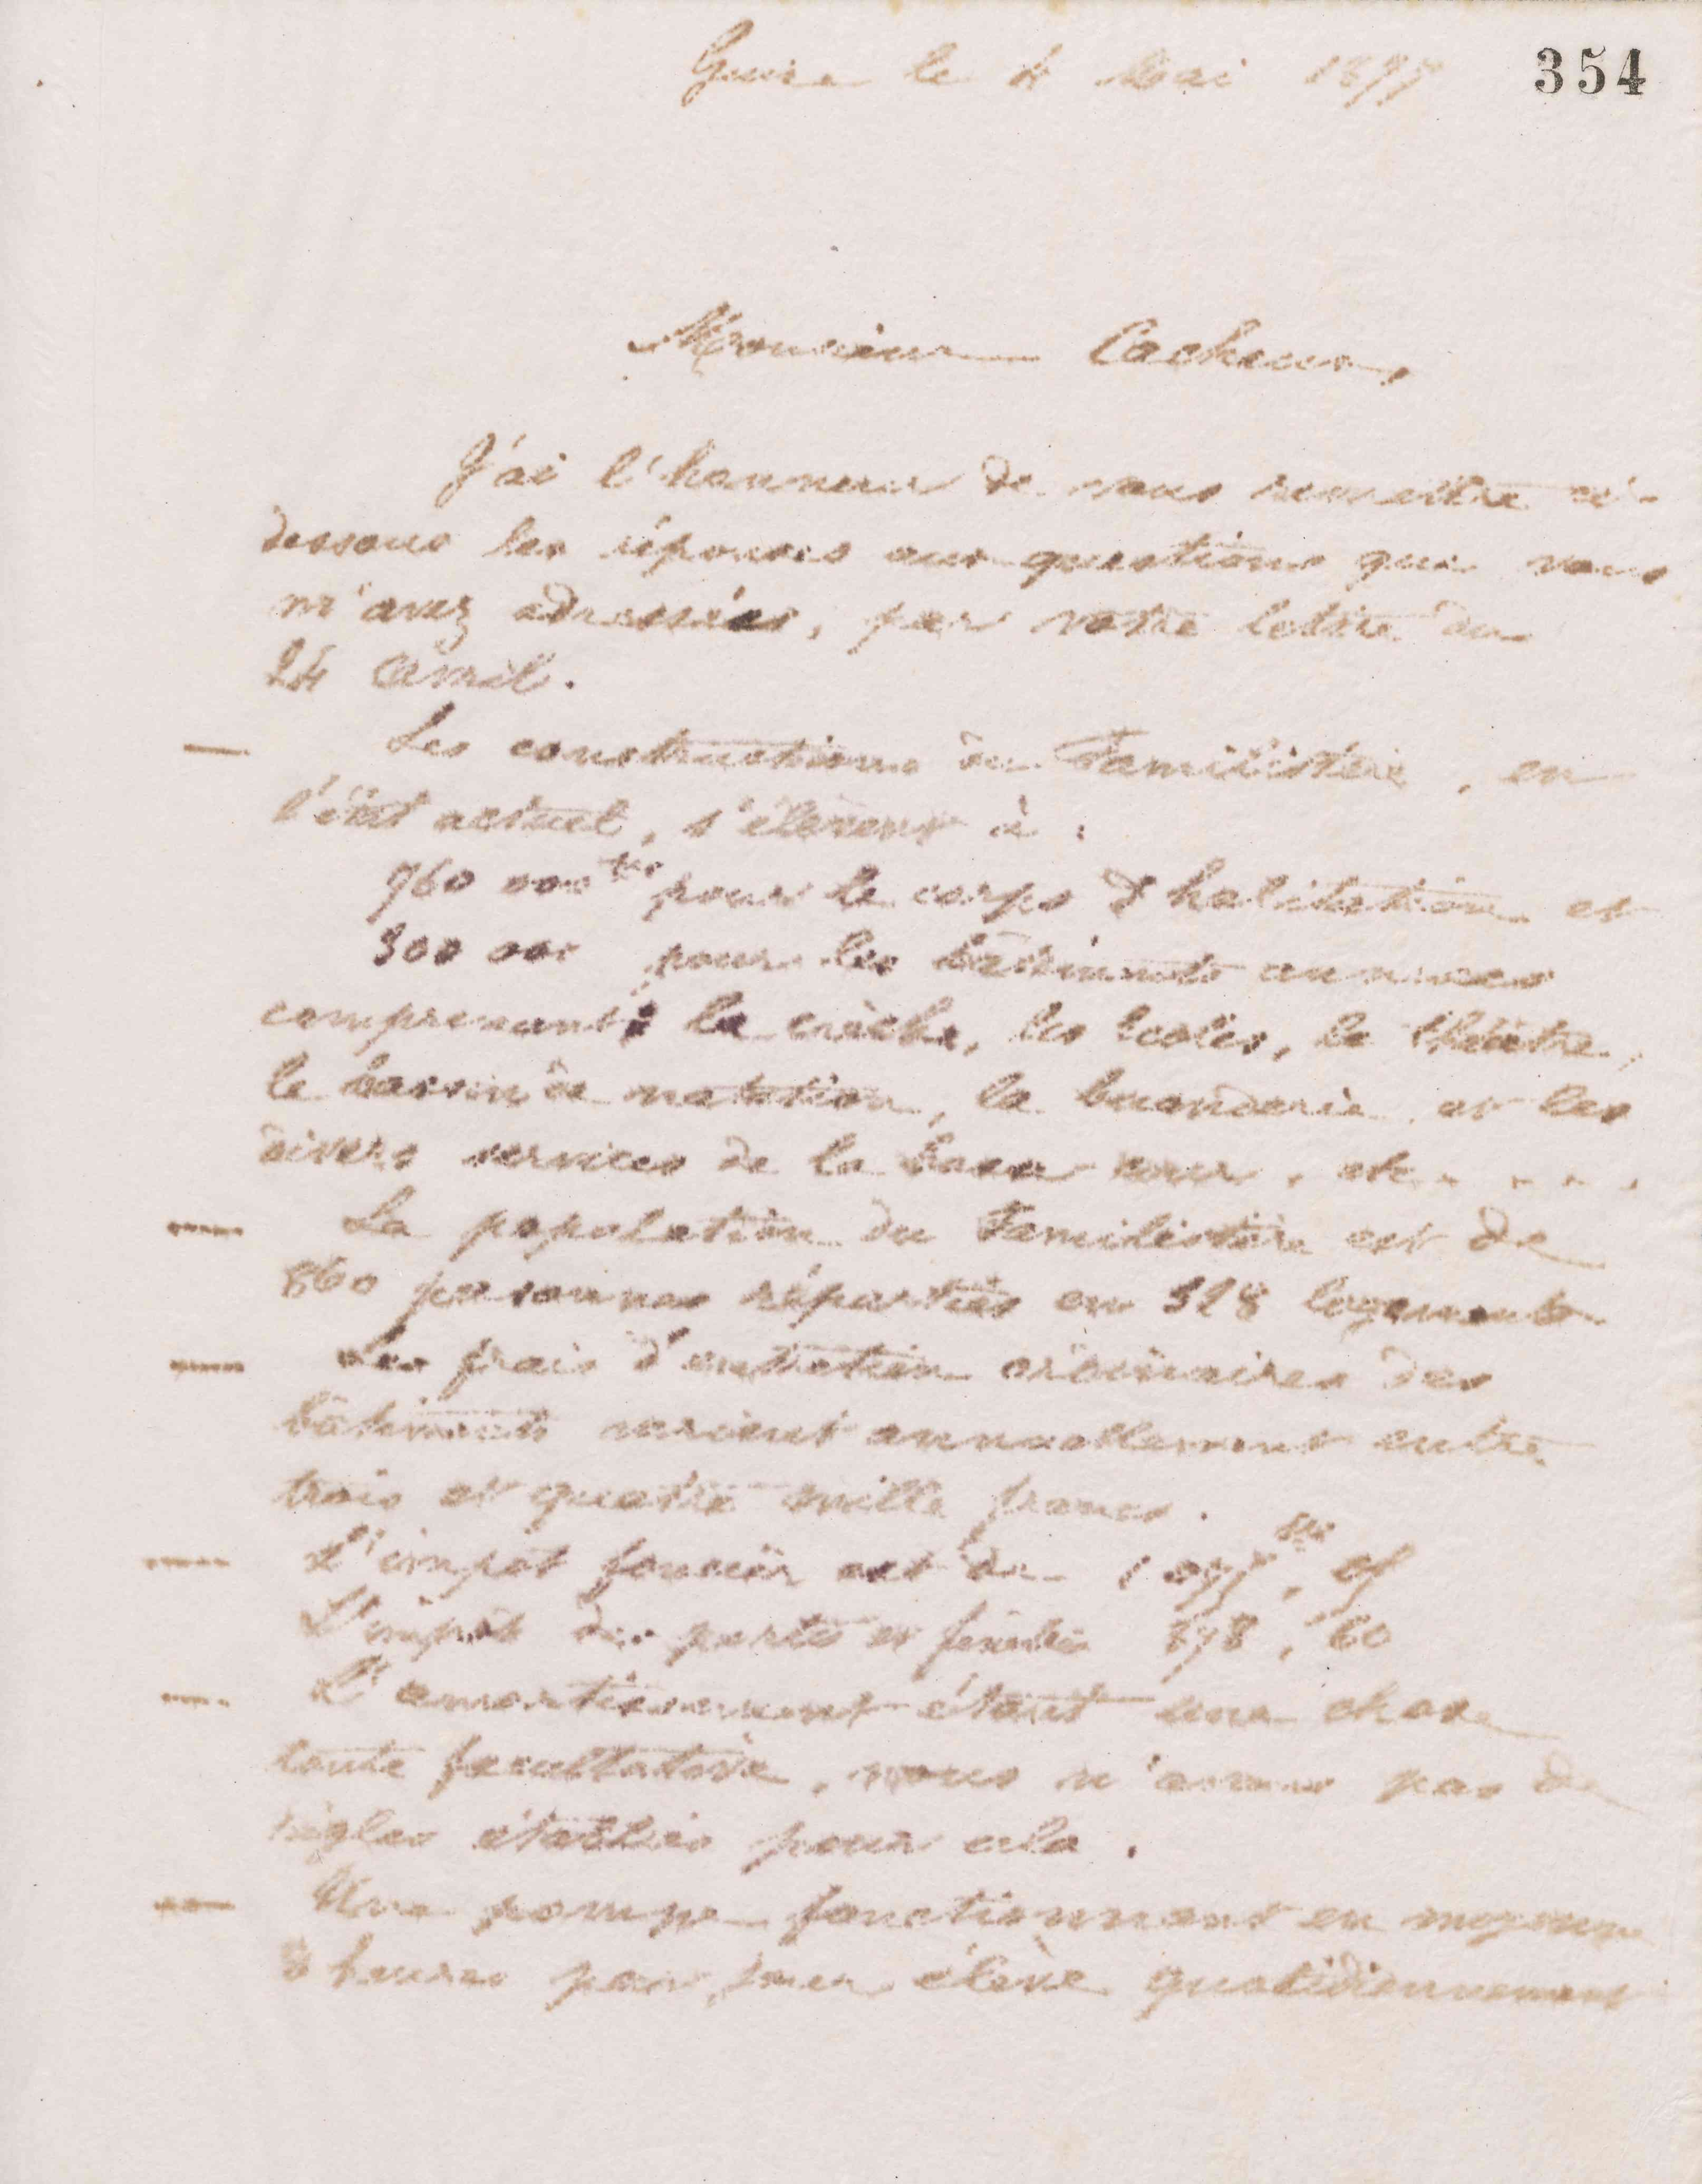 354
Guise le 4 Mai 1877
Monsieur Cacheux,
J'ai l'honneur de vous remettre ci-
dessous les réponses aux questions que vous
m'avez adressées, par votre lettre du
24 Avril.
— Les constructions du Familistère, en
l'état actuel, s'élèvent à :
960 000 frs pour le corps d'habitation et
300 000 pour les bâtiments annexes
comprenant la crèche, les écoles, le théâtre,
le bassin de natation, la buanderie et les
divers services de la basse cour, etc. . . . .
— La population du Familistère est de
860 personnes réparties en 328 logements
— Les frais d'entretien ordinaires des
bâtiments varient annuellement entre
trois et quatre mille francs.
— L'impôt foncier est de
L'impôt des portes et fenêtres 878, 60
— L'amortissement étant une chose
toute facultative, nous n'avons pas de
règles établies pour cela.
— Une pompe fonctionnant en moyenne
heures par jour élève quotidiennement